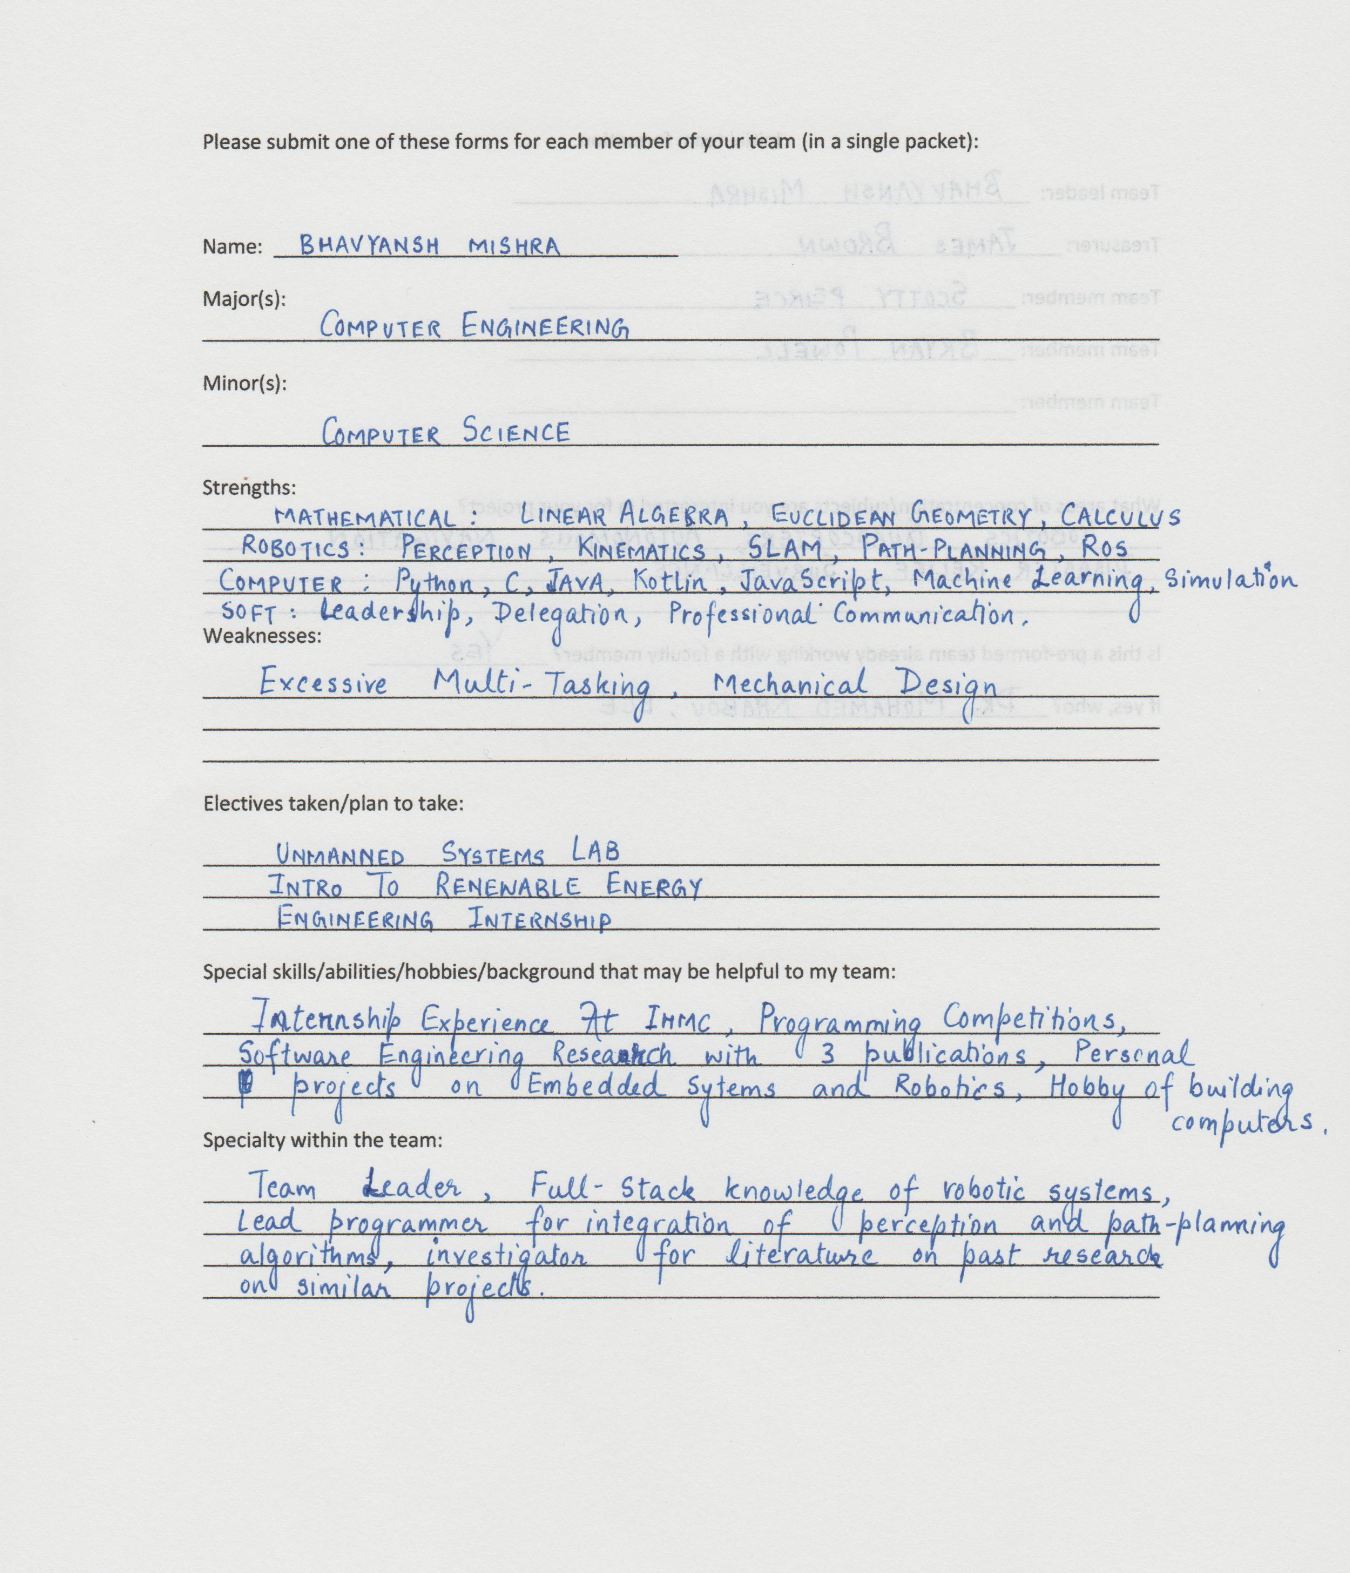 Please submit one of these forms for each member of your team (in a single packet):
Name: BHAVYANSH MISHRA
Major(s):
COMPUTER ENGINEERING
Minor(s):
COMPUTER SCIENCE
Strengths:
MATHEMATICAL : LINEAR ALGEBRA, EUCLIDEAN GEOMETRY, CALCULUS
ROBOTICS : PERCEPTION, KINEMATICS, SLAM, PATH-PLANNING, ROS
COMPUTER : Python, C, JAVA, Kotlin, JavaScript, Machine Learning, Simulation
SOFT : Leadership, Delegation, Professional Communication.
Weaknesses:
Excessive Multi-Tasking, Mechanical Design
Electives taken/plan to take:
UNMANNED SYSTEMS LAB
INTRO TO RENEWABLE ENERGY
ENGINEERING INTERNSHIP
Special skills/abilities/hobbies/background that may be helpful to my team:
Internship Experience At IHMC, Programming Competitions,
Software Engineering Research with 3 publications, Personal
projects on Embedded Sytems and Robotics, Hobby of building
computers.
Specialty within the team:
Team Leader, Full-Stack knowledge of robotic systems,
Lead programmer for integration of perception and path-planning
algorithms, investigator for literature on past research
on similar projects.